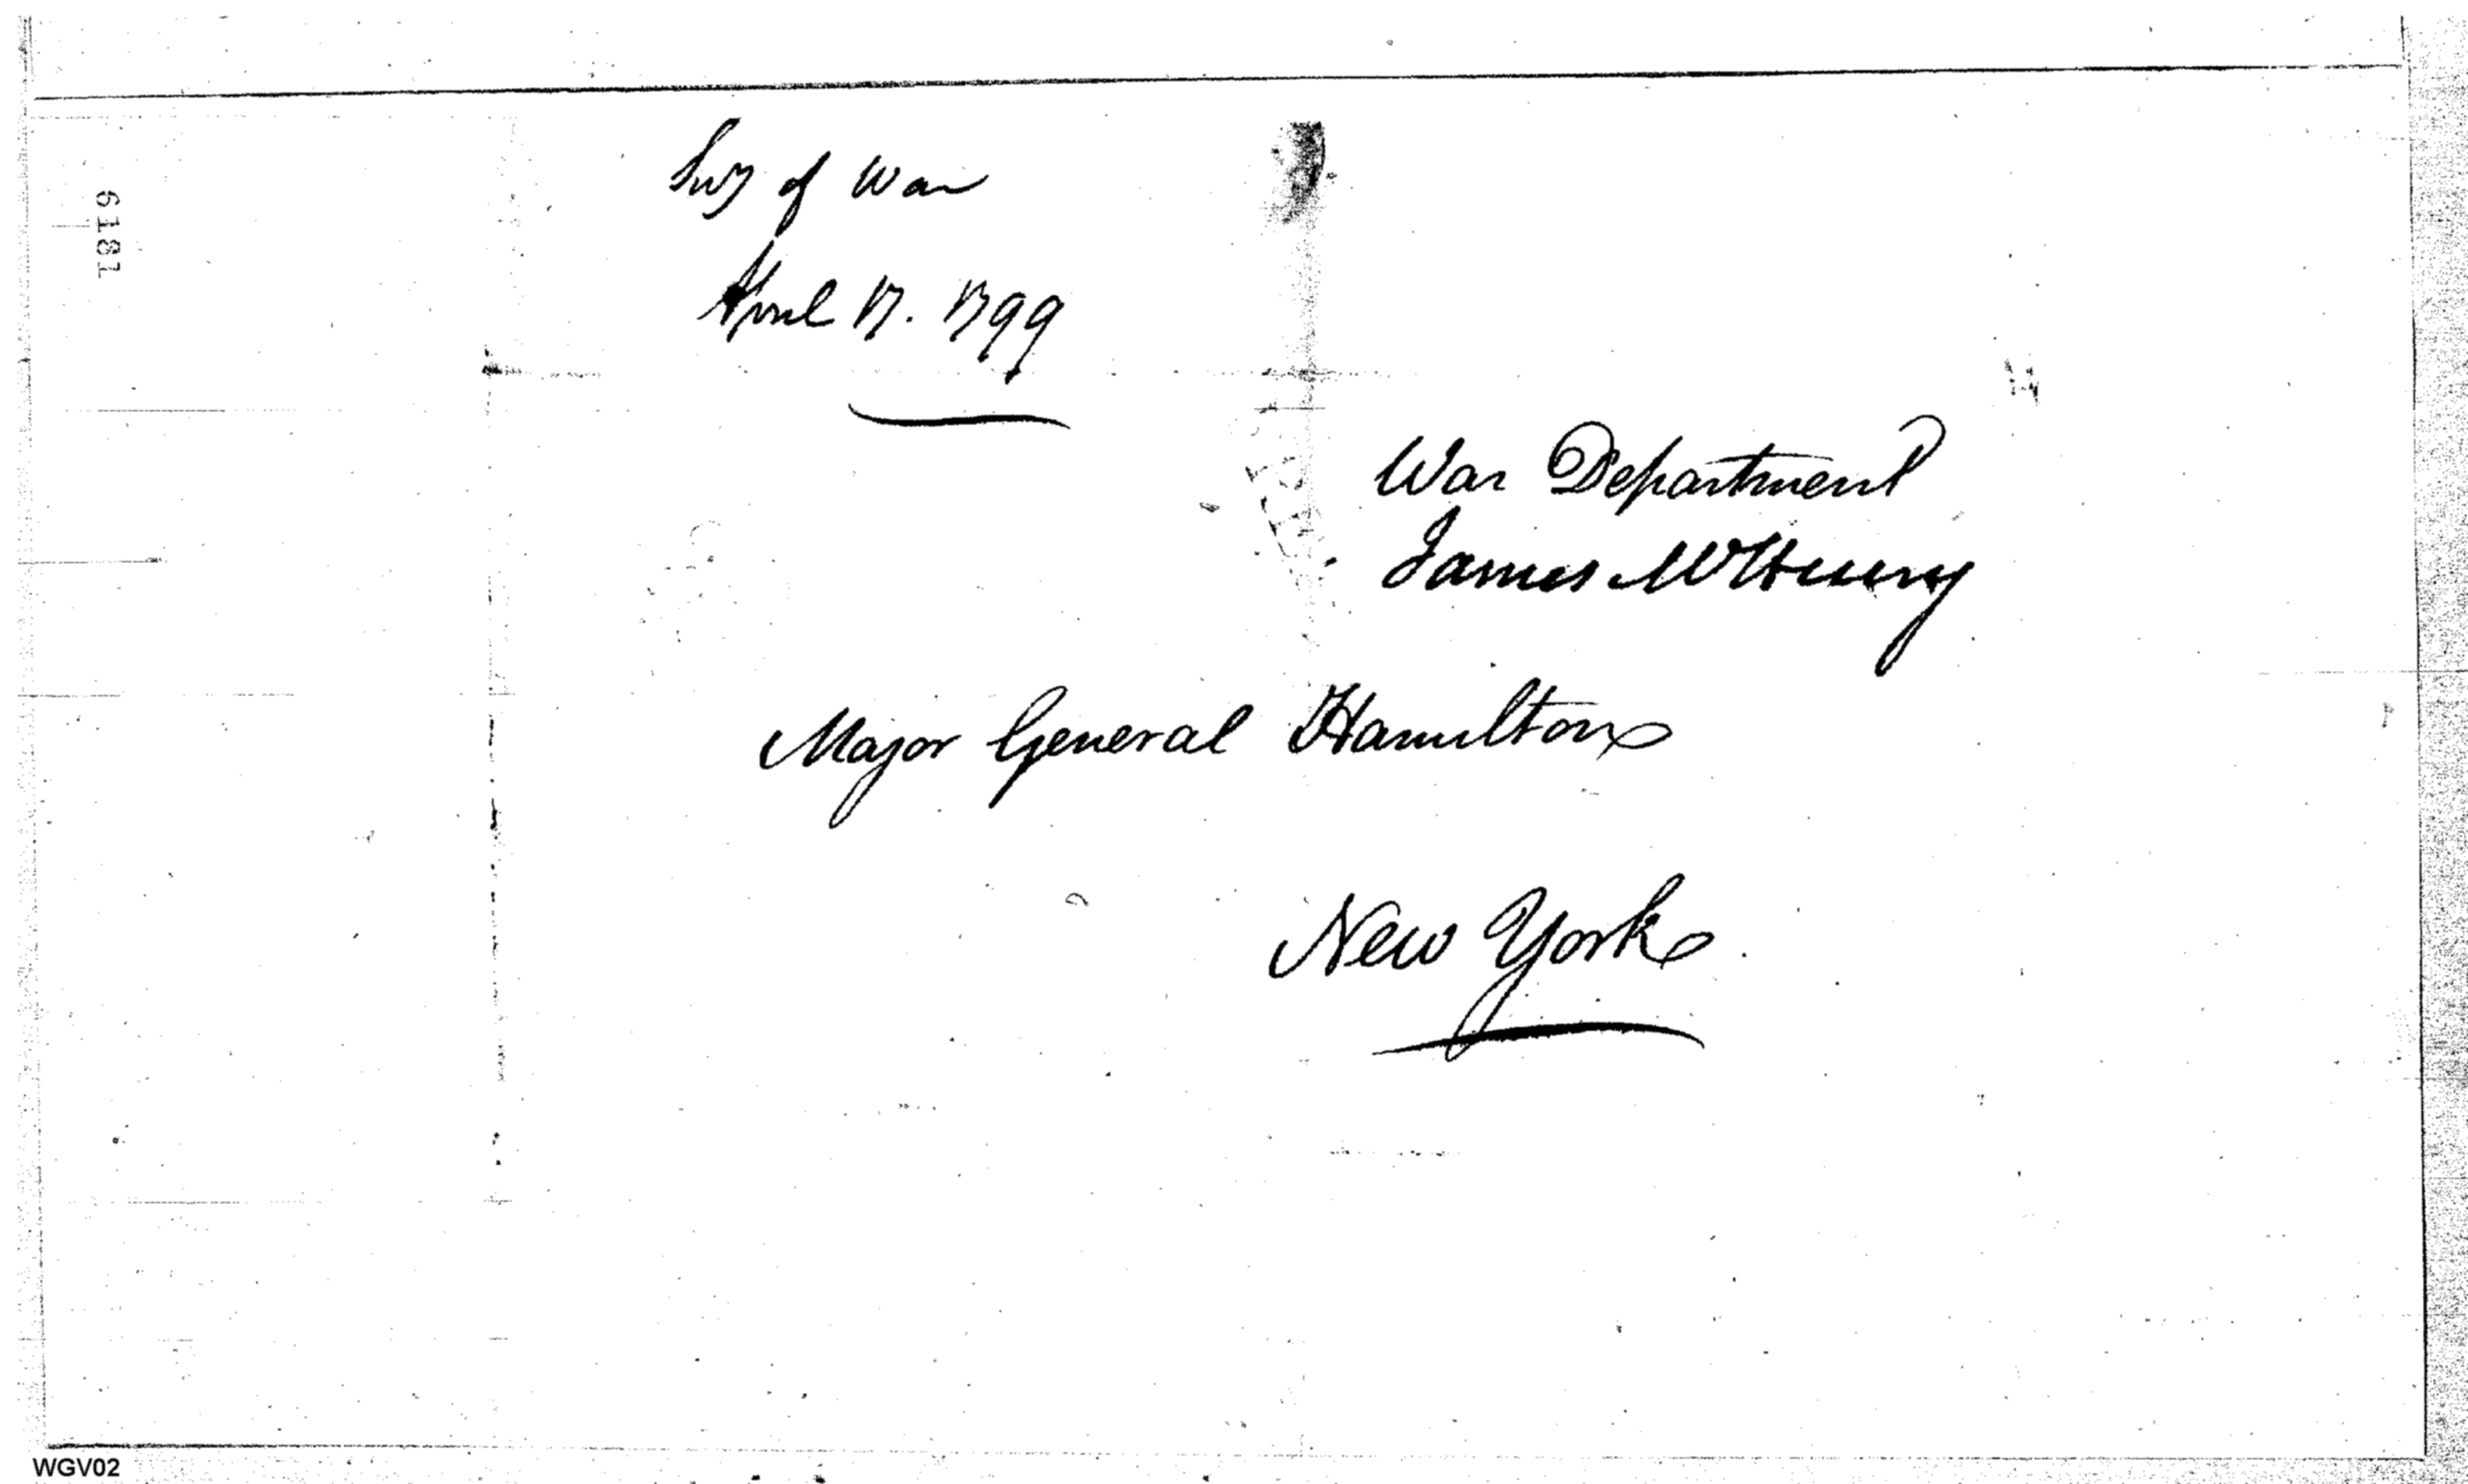 Secy of War
April 17. 1799
6181
War Department
James McHenry
Major General Hamilton
New York.
WGV02